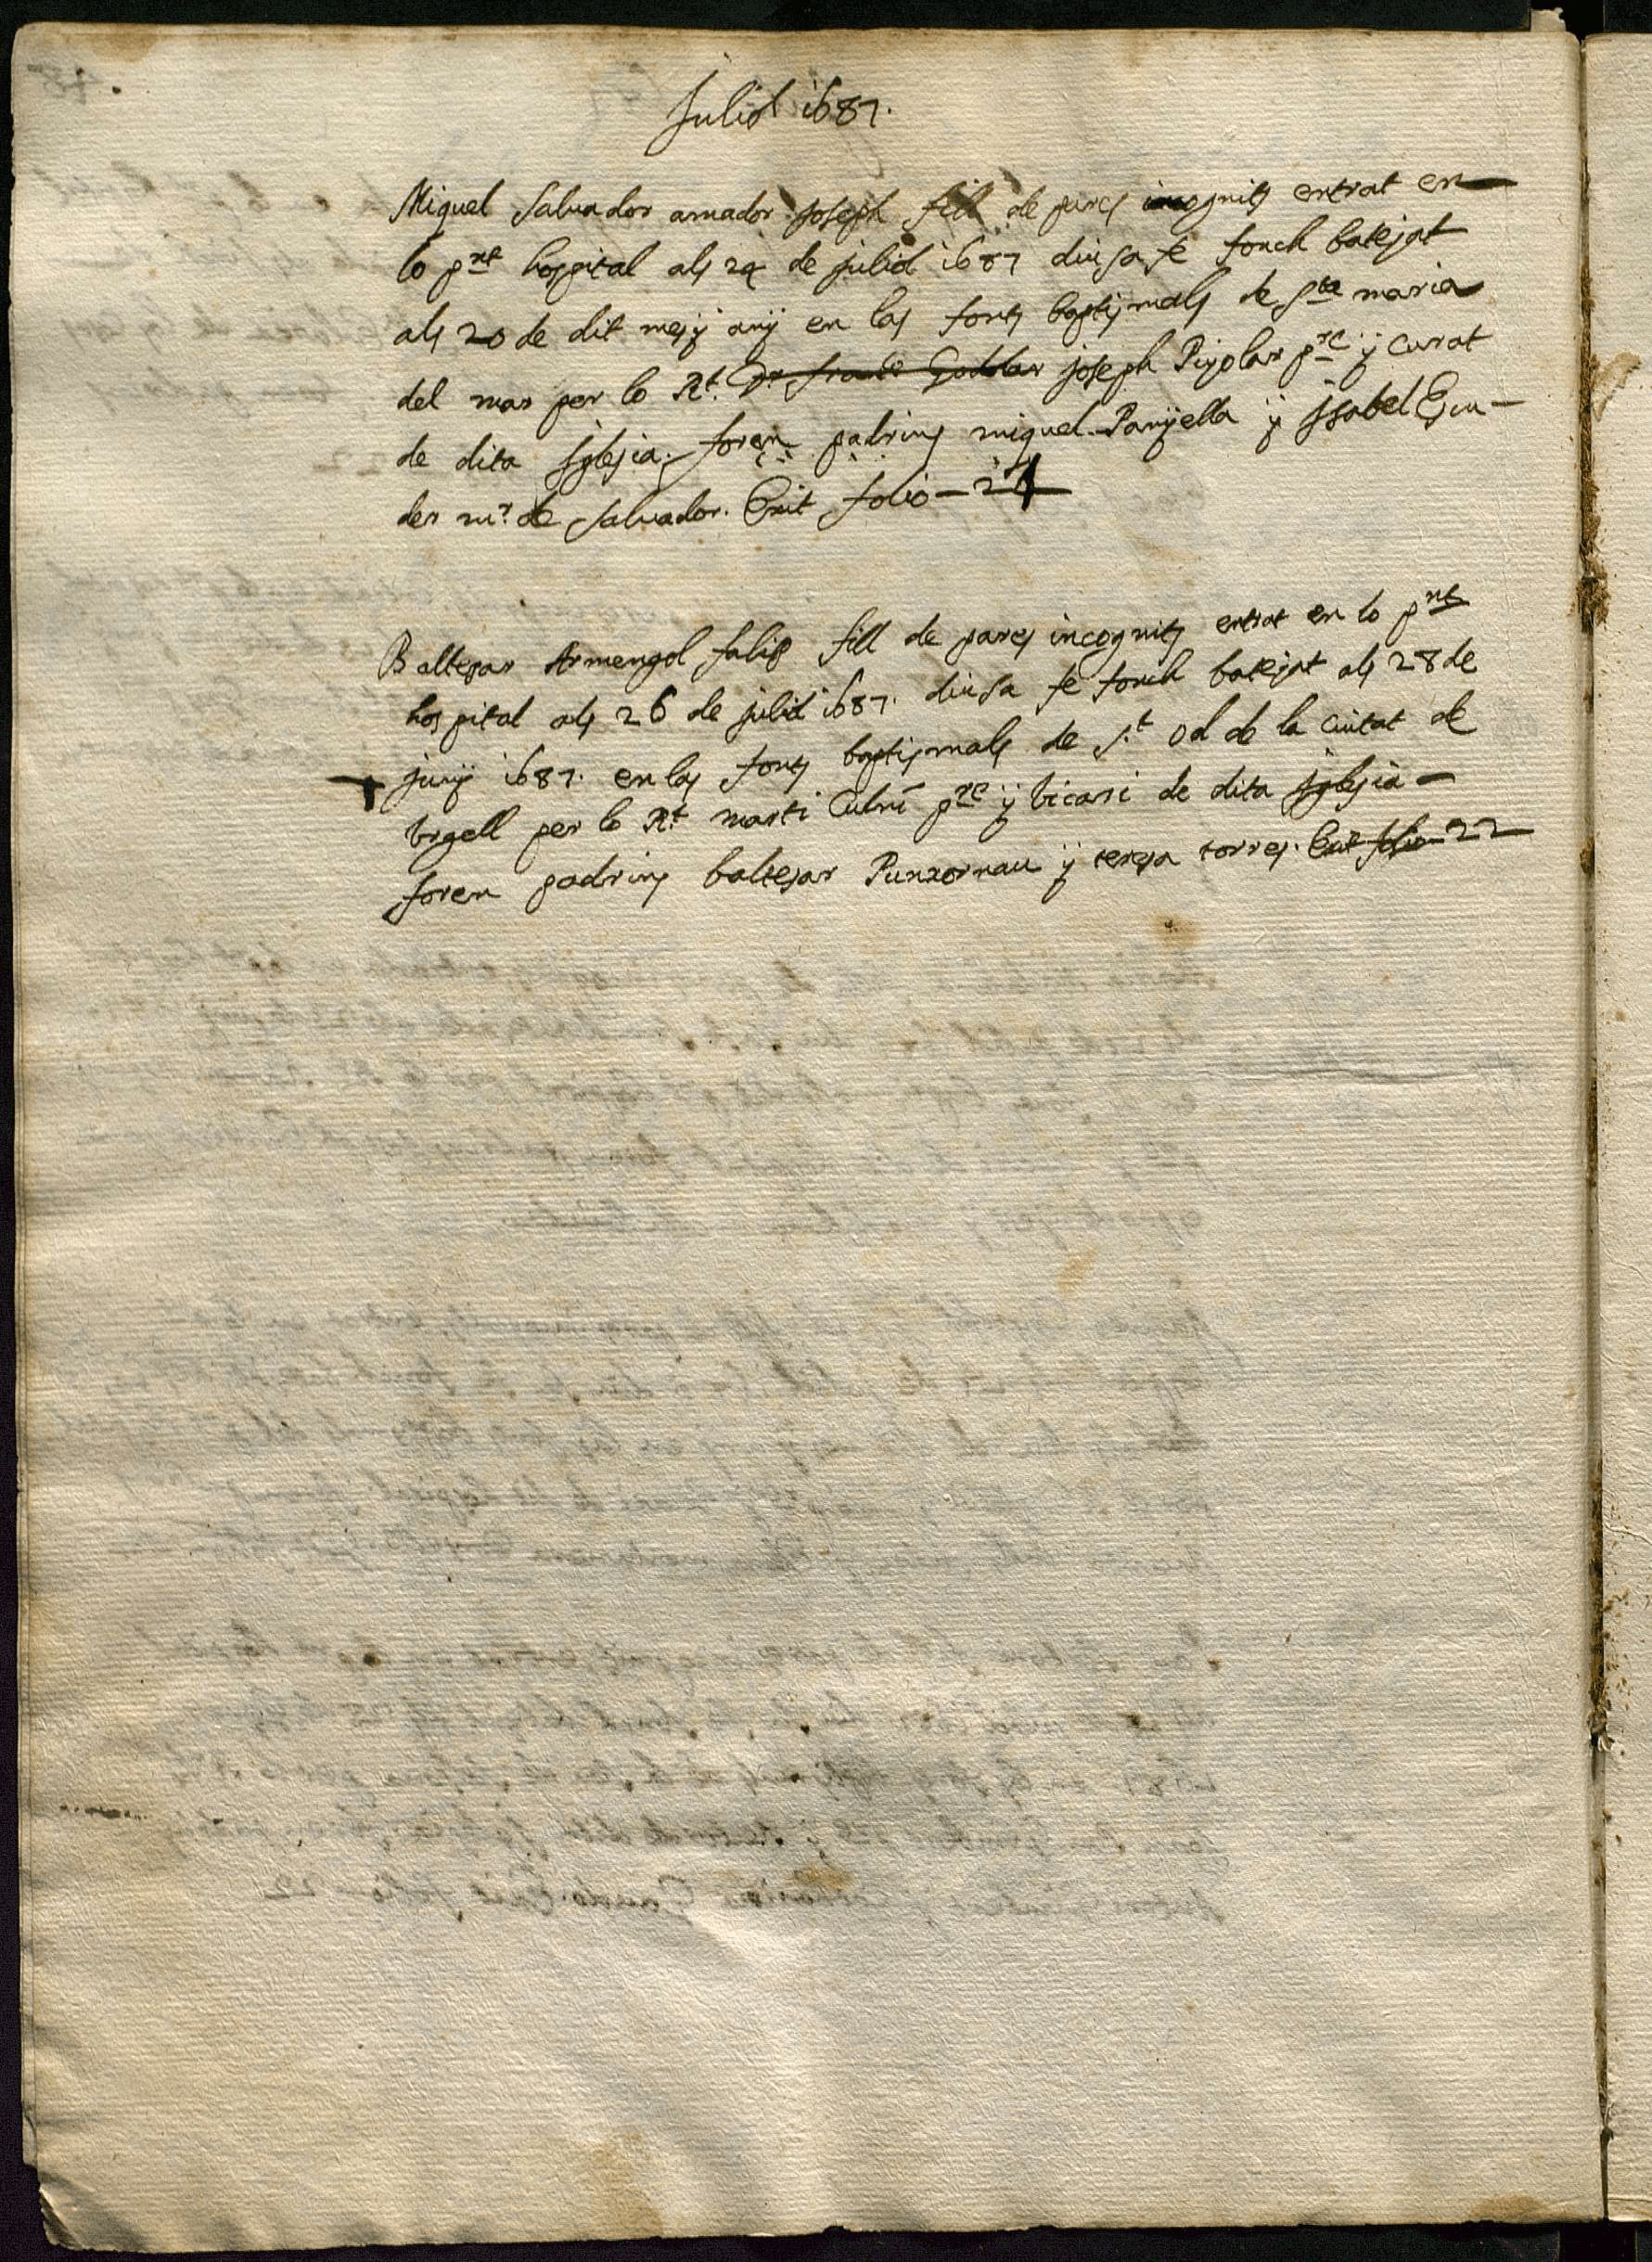 Juliol 1687.
Miquel Salvador amador Joseph fill de pares incognits entrat en
lo pnt hospital als 24 de juliol 1687 diu sa fe fonch batejat
als 20 de dit mes y any en las fonts baptismals de sta maria
del mar per lo Rt. Joseph Pujolar pre y curat
de dita Iglesia. foren padrins miquel Panyella y Isabel
der mr. de Salvador. Exit folio - 21
Baltesar Armengol falip fill de pares incognits entrat en lo pnt
hospital als 26 de juliol 1687. diu sa fe fonch batejat als 28 de
juny 1687. en las fonts baptismals de St Od de la Ciutat de
Vrgell per lo Rt marti pre y bicari de dita Iglesia -
foren padrins baltesar Punxornau y teresa torres. Exit folio - 22